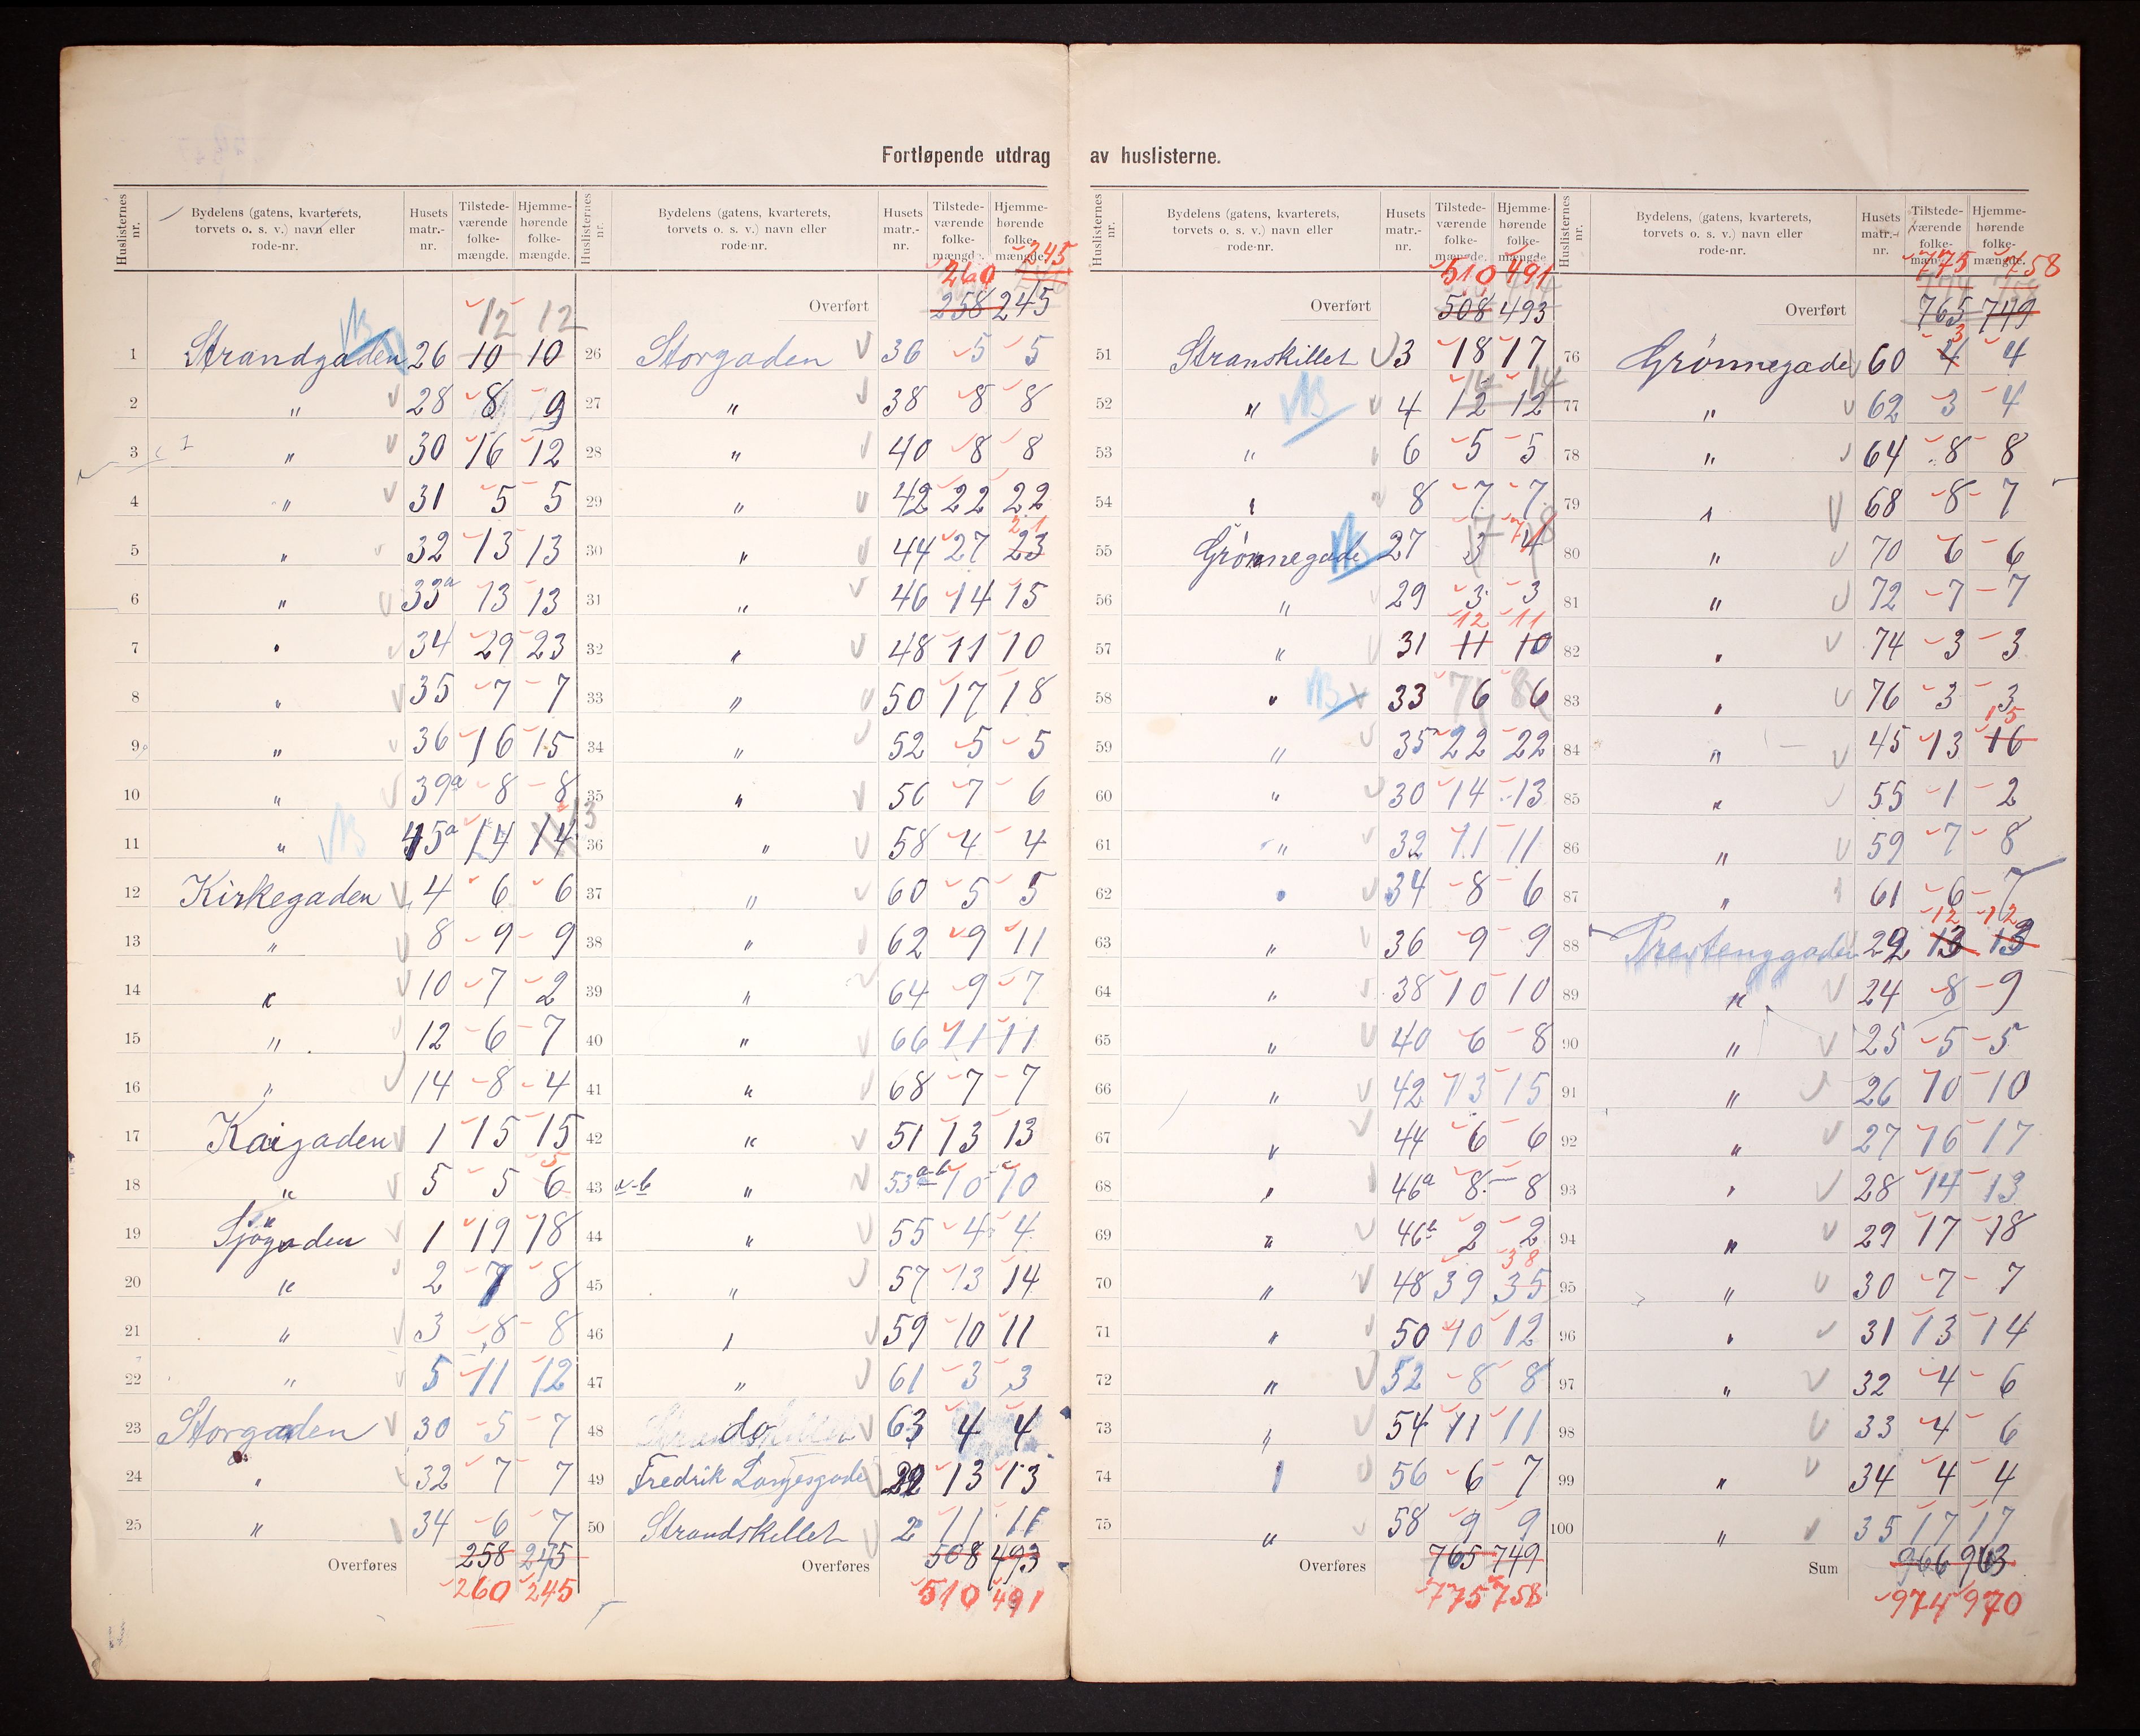 Fortløpende utdrag av huslisterne.
Huslisternes nr. Bydelens (gatens, kvarterets, torvets o. s. v.) navn eller rode-nr. Husets matr.-nr. Tilstedeværende folkemængde. Hjemmehørende folkemængde.
12 12
1 Strandgaden 26 10 10
2 " 28 8 9
3 " 30 16 12
4 " 31 5 5
5 " 32 13 13
6 " 33a 13 13
7 " 34 29 23
8 " 35 7 7
9 " 36 16 15
10 " 39a 8 8
13
11 " 45a 14 14
12 Kirkegaden 4 6 6
13 " 8 9 9
14 " 10 7 2
15 " 12 6 7
16 " 14 8 4
17 Kaigaden 1 15 15
5
18 " 5 5 6
19 Sjøgaden 1 19 18
20 " 2 7 8
21 " 3 8 8
22 " 5 11 12
23 Storgaden 30 5 7
24 " 32 7 7
25 " 34 6 7
Overføres 258 245
260 245
Huslisternes nr. Bydelens (gatens, kvarterets, torvets o. s. v.) navn eller rode-nr. Husets matr.-nr. Tilstedeværende folkemængde. Hjemmehørende folkemængde.
260 245
Overført 258 245
26 Storgaden 36 5 5
27 " 38 8 8
28 " 40 8 8
29 " 42 22 22
21
30 " 44 27 23
31 " 46 14 15
32 " 48 11 10
33 " 50 17 18
34 " 52 5 5
35 " 56 7 6
36 " 58 4 4
37 " 60 5 5
38 " 62 9 11
39 " 64 9 7
40 " 66 11 11
41 " 68 7 7
42 " 51 13 13
43 a-b " 53a-b 10 10
44 " 55 4 4
45 " 57 13 14
46 " 59 10 11
47 " 61 3 3
48 do 63 4 4
49 Fredrik Langesgade 22 13 13
50 Strandskillet 2 11 11
Overføres 508 493
510 491
Huslisternes nr. Bydelens (gatens, kvarterets, torvets o. s. v.) navn eller rode-nr. Husets matr.-nr. Tilstedeværende folkemængde. Hjemmehørende folkemængde.
510 491
Overført 508 493
51 Stranskillet 3 18 17
14 14
52 " 4 12 12
53 " 6 5 5
54 " 8 7 7
55 Grønnegade 27 3 4
56 " 29 3 3
12 11
57 " 31 11 10
58 " 33 6 6
59 " 35a 22 22
60 " 30 14 13
61 " 32 11 11
62 " 34 8 6
63 " 36 9 9
64 " 38 10 10
65 " 40 6 8
66 " 42 13 15
67 " 44 6 6
68 " 46a 8 8
69 " 46b 2 2
38
70 " 48 39 35
71 " 50 10 12
72 " 52 8 8
73 " 54 11 11
74 " 56 6 7
75 " 58 9 9
Overføres 765 749
775 758
Huslisternes nr. Bydelens, (gatens, kvarterets, torvets o. s. v.) navn eller rode-nr. Husets matr.-nr. Tilstedeværende folkemængde. Hjemmehørende folkemængde.
775 758
Overført 765 749
3
76 Grønnegade 60 4 4
77 " 62 3 4
78 " 64 8 8
79 " 68 8 7
80 " 70 6 6
81 " 72 7 7
82 " 74 3 3
83 " 76 3 3
15
84 " 45 13 16
85 " 55 1 2
86 " 59 7 8
87 " 61 6 7
12 12
88 Prestenggaden 22 13 13
89 " 24 8 9
90 " 25 5 5
91 " 26 10 10
92 " 27 16 17
93 " 28 14 13
94 " 29 17 18
95 " 30 7 7
96 " 31 13 14
97 " 32 4 6
98 33 4 6
99 " 34 4 4
100 " 35 17 17
Sum 966 963
974 970